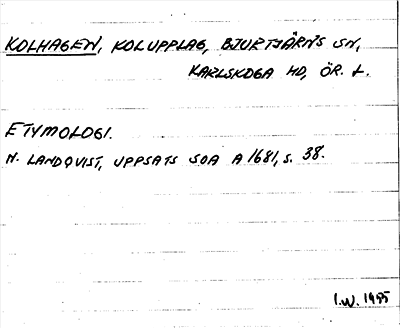 KOLHAGEN, KOLUPPLAG, BJURTJÄRNS SN,
KARLSKOGA HD, ÖR. L.
ETYMOLOGI.
N. LANDQVIST, UPPSATS SOA A 1681, S. 38.
I.W. 1985